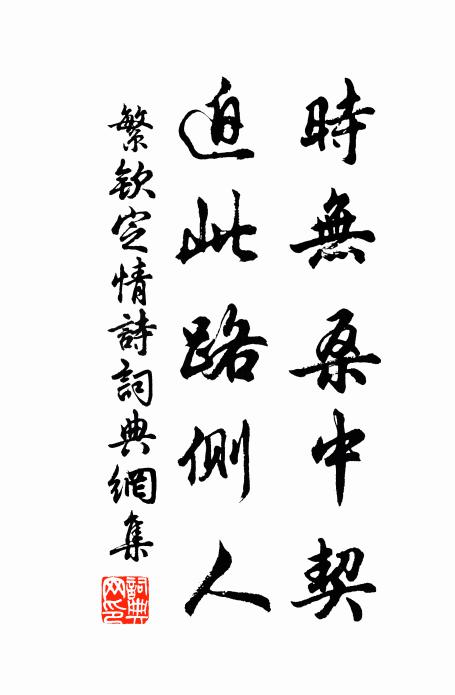 時無桑中契
迫此路側人
繁欽定情詩詞典網集
詞典網印